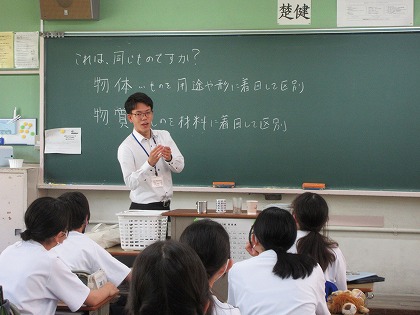 楚健
これは、同じものですか?
物体…ものを用途や形に着目して区別
物質 ものを材料に着目して区別